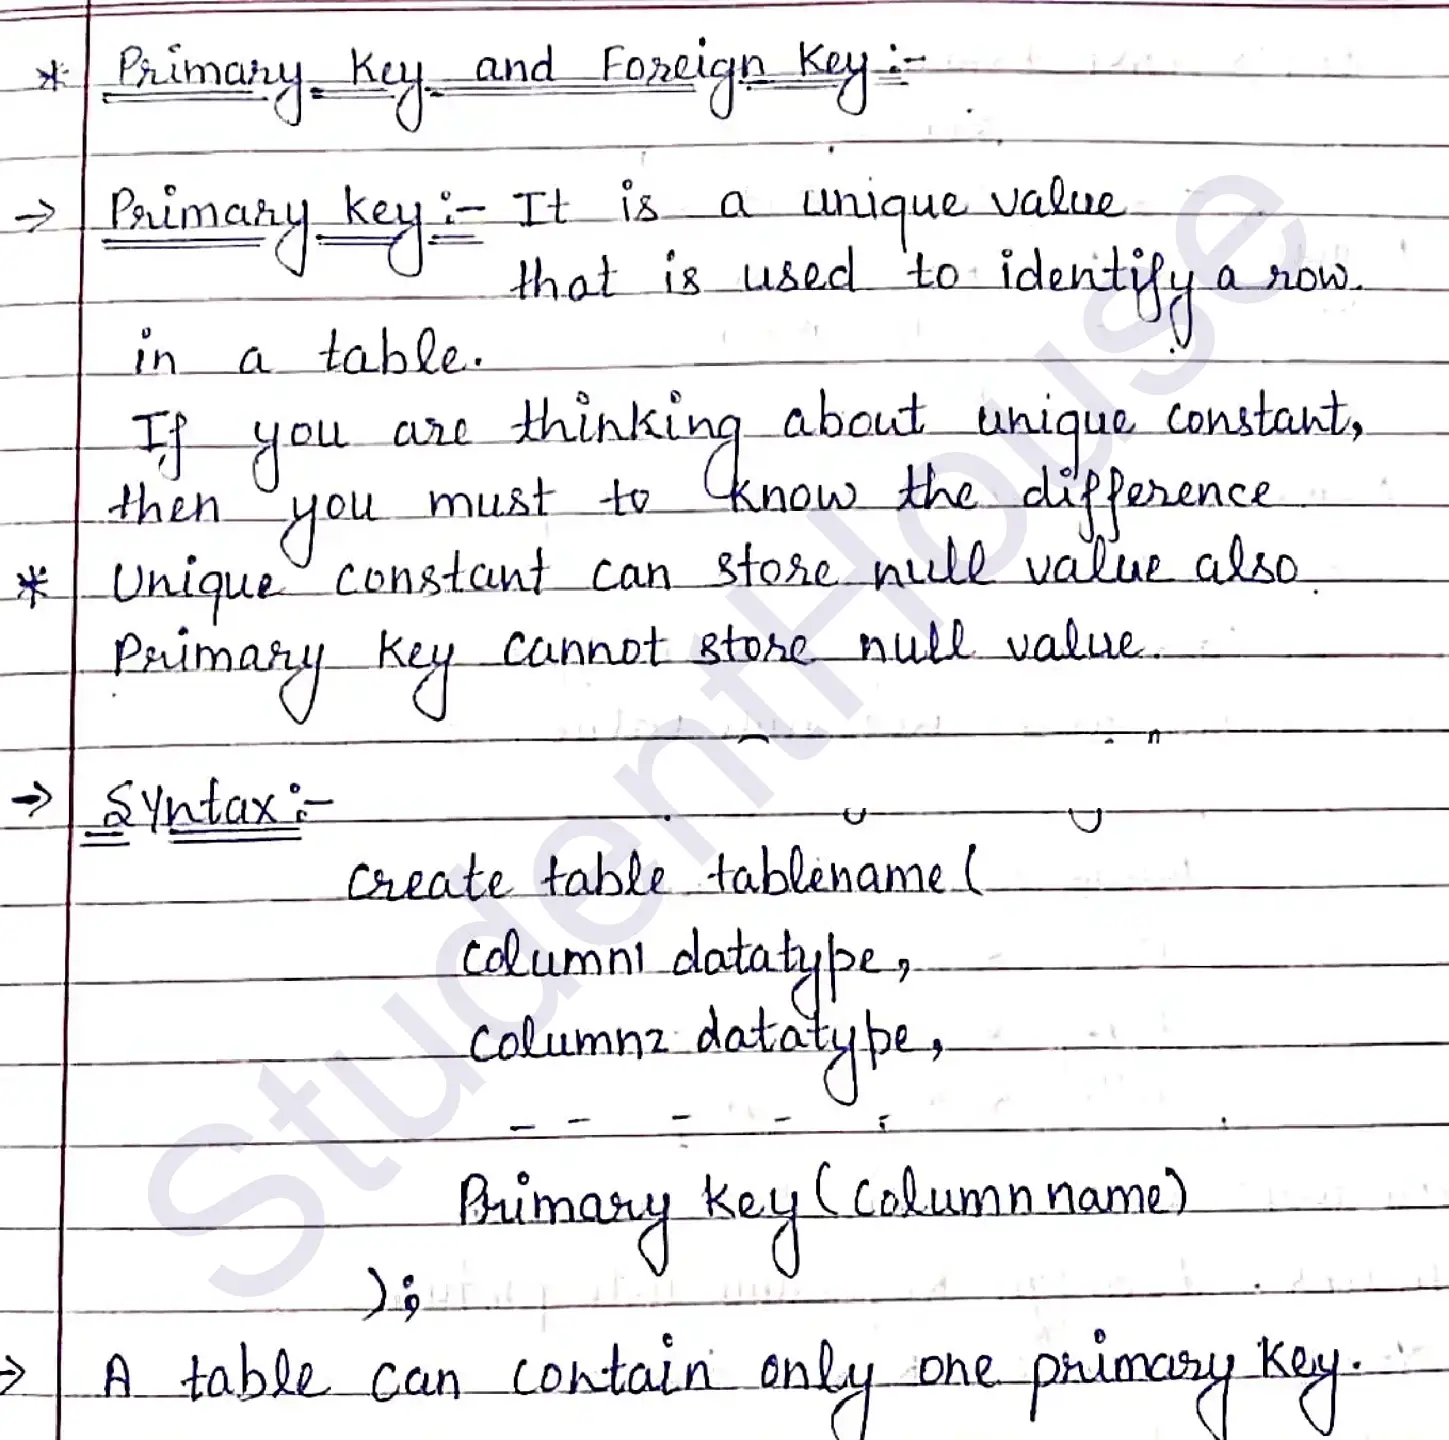 * Primary Key and Foreign Key :-
→ Primary key :- It is a unique value
that is used to identify a row.
in a table.
If you are thinking about unique constant,
then you must to know the difference
* Unique constant can store null value also.
Primary Key cannot store null value.
→ Syntax :-
create table tablename (
column1 datatype,
column2 datatype,
- - - - -
Primary key (column name)
);
→ A table can contain only one primary key.
StudentHouse